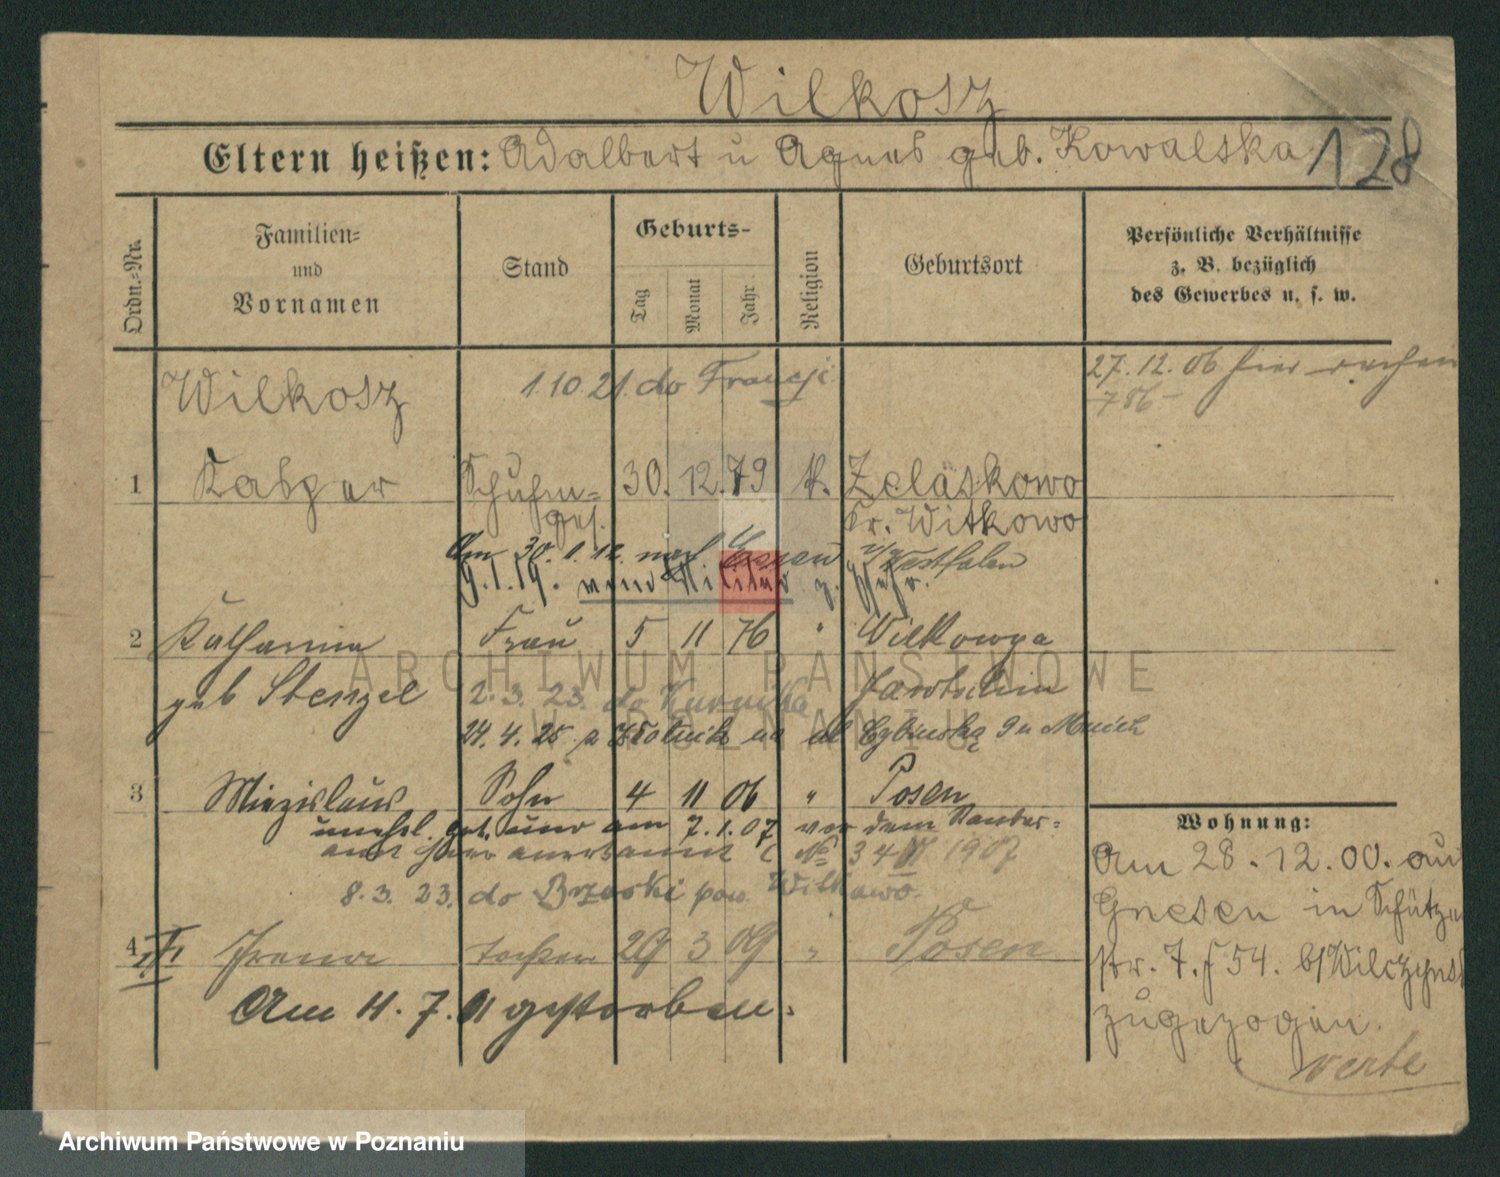 Wilkosz
Eltern heißen: Adalbert u Agnes geb. Kowalska 128
Ordn.-Nr.
Familien-
und
Vornamen
Stand
Geburts-
Tag
Monat
Jahr
Religion
Geburtsort
Persönliche Verhältnisse
z. B. bezüglich
des Gewerbes u. s. w.
Wilkosz
1.10.21. do Francji
27. 12. 06 hier
786
1 Kasper Schuhm= 30. 12. 79 k. Zelaskowo
ges. Kr. Witkowo
Am 30. 1. 12. nach Essen i/Westfalen
9.1.19. vom Militär z.
2 Katharina Frau 5 11 76 " Wilkowya
geb Stenzel Jarotschin
2. 3. 23. do Kurnika
24. 4. 25 z Kurnika na ul Cybinską 9
3 Miezislaus Sohn 4 11 06 " Posen
unehl. geb. und am 7. 1. 07 vor dem Standes=
amt hier anerkannt № 34 1907
8. 3. 23. do pow. Witkowo.
4 Irena tochter 29 3 09 " Posen
Am 11. 7. 11 gestorben.
Wohnung:
Am 28. 12. 00. aus
Gnesen in Schützen
str. 7. f 54. b/Wilczynsk
zugezogen.
verte
ARCHIWUM PAŃSTWOWE
W POZNANIU
Archiwum Państwowe w Poznaniu